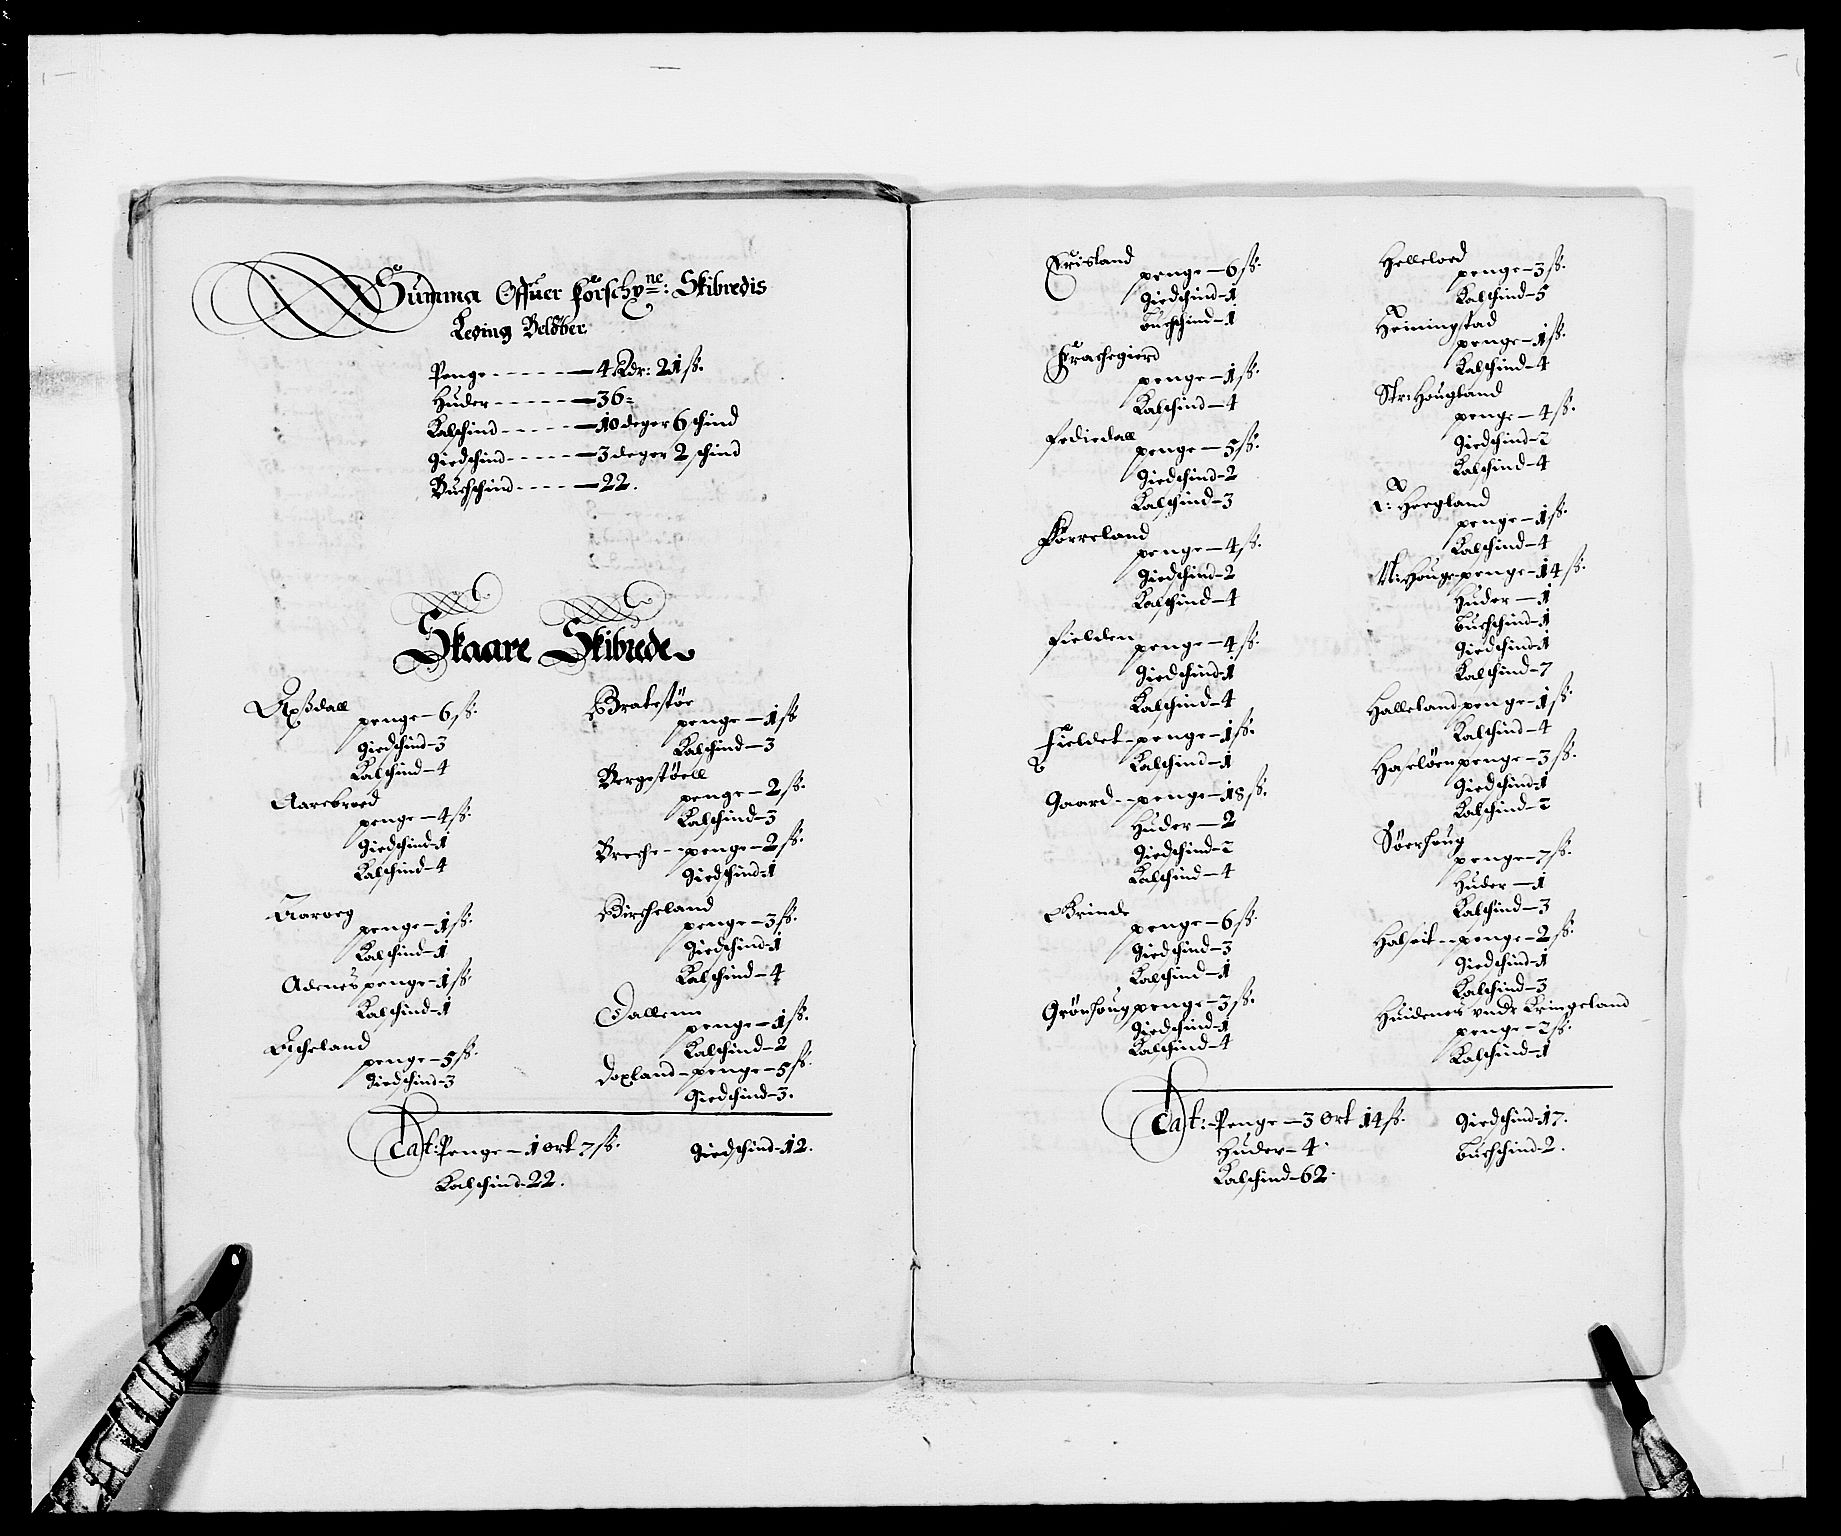 Summa Offuer forschne: Skibredis
Leding Beløber
Penge - - - - - 4 Rdr: 21 ß.
Huder - - - - - 36 -
Kalschind - - - - 10 deger 6 schind
Giedschind - - - - - 3 deger 2 schind
Buchschind - - - - 22.
Skaare Skibrede
Axßdall
penge - 6 ß.
Giedschind - 3
Kalschind - 4
Aarebroed
penge - 4 ß.
Giedschind - 1
Kalschind - 4
Aarveg
penge - 1 ß.
Kalschind - 1
Adenes penge - 1 ß.
Kalschind - 1
Echeland
penge - 5 ß.
Giedschind - 3
Bratestøe
penge - 1 ß
Kalschind - 3
Bergestøell
penge - 2 ß.
Kalschind - 3
Breche - - penge - 2 ß.
Giedschind - 1
Bircheland
penge - 3 ß.
Giedschind - 1
Kalschind - 4
Dallenn
penge - 1 ß.
Kalschind - 2
Doxland - penge - 5 ß.
Giedschind - 3.
Lat: Penge - 1 Ort 7 ß.
Giedschind - 12.
Kalschind - 22.
Frisland
penge - 6 ß.
Giedschind - 1
Buchschind - 1
Frachegierd
penge - 1 ß.
Kalschind - 4
Fediedall
penge - 5 ß.
Giedschind - 2
Kalschind - 3
Førreland
penge - 4 ß.
Giedschind - 2
Kalschind - 4
Fielden
penge - 4 ß.
Giedschind - 1
Kalschind - 4
Fieldet - penge - 1 ß.
Kalschind - 1
Gaard - - penge - 18 ß.
Huder - 2
Giedschind - 2
Kalschind - 4
Grinde
penge - 6 ß.
Giedschind - 3
Kalschind - 1
Grønhoug penge - 3 ß.
Giedschind - 1
Kalschind - 4
Helleloed
penge - 3 ß.
Kalschind - 5
Heiningstad
penge - 1 ß.
Kalschind - 4
Str: Hougland
penge - 4 ß.
Giedschind - 2
Kalschind - 4
L: Hougland
penge - 1 ß.
Kalschind - 4
N: Houge penge - 14 ß.
Huder - 1
Buchschind - 1
Giedschind - 1
Kalschind - 7
Halleland penge - 1 ß
Kalschind - 4
Haseløen penge - 3 ß.
Giedschind - 1
Kalschind - 2
Søerhoug
penge - 7 ß.
Huder - 1
Kalschind - 3
Halseit - - penge - 2 ß.
Giedschind - 1
Kalschind - 3
Huidenes vnde Kringeland
penge - 2 ß.
Kalschind - 1
Lat: Penge - 3 Ort 14 ß.
Giedschind - 17.
Huder - 4.
Buchschind - 2.
Kalschind - 62.